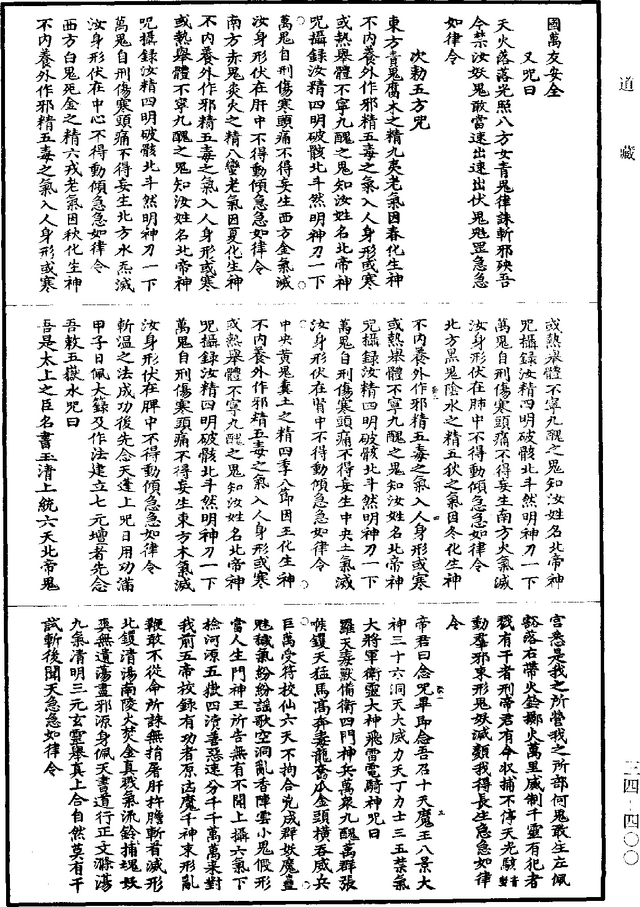 國萬友安全
又咒曰
天火落落光照八方女青鬼律誅斬邪殃吾
令禁汝妖鬼敢當速出速出伏鬼魁罡急急
如律令
次勑五方咒
東方青鬼腐木之精九夷老氣因春化生神
不內養外作邪精五毒之氣入人身形或寒
或熱舉體不寧九醜之鬼知汝姓名北帝神
咒攝錄汝精四明破骸北斗然明神刀一下
萬鬼自刑傷寒頭痛不得妄生西方金氣滅
汝身形伏在肝中不得動傾急急如律令
南方赤鬼炎火之精八蠻老氣因夏化生神
不內養外作邪精五毒之氣入人身形或寒
或熱舉體不寧九醜之鬼知汝姓名北帝神
咒攝錄汝精四明破骸北斗然明神刀一下
萬鬼自刑傷寒頭痛不得妄生北方水炁滅
汝身形伏在中心不得動傾急急如律令
西方白鬼死金之精六戎老氣因秋化生神
不內養外作邪精五毒之氣入人身形或寒
或熱舉體不寧九醜之鬼知汝姓名北帝神
咒攝錄汝精四明破骸北斗然明神刀一下
萬鬼自刑傷寒頭痛不得妄生南方火氣滅
汝身形伏在肺中不得動傾急急如律令
北方黑鬼陰水之精五狄之氣因冬化生神
不內養外作邪精五毒之氣入人身形或寒
或熱舉體不寧九醜之鬼知汝姓名北帝神
咒攝錄汝精四明破骸北斗然明神刀一下
萬鬼自刑傷寒頭痛不得妄生中央土氣滅
汝身形伏在腎中不得動傾急急如律令
中央黃鬼糞土之精四季八節因王化生神
不內養外作邪精五毒之氣入人身形或寒
或熱舉體不寧九醜之鬼知汝姓名北帝神
咒攝錄汝精四明破骸北斗然明神刀一下
萬鬼自刑傷寒頭痛不得妄生東方木氣滅
汝身形伏在脾中不得動傾急急如律令
斬溫之法成功後先念天蓬上咒日用功滿
甲子日佩大錄及作法建立七元壇者先念
吾敕五嶽水咒曰
吾是太上之臣名書玉清上統六天北帝鬼
宫悉是我之所營我之所部何鬼敢生左佩
豁落右帶火鈴擲火萬里威制千靈有犯者
戮有干者刑帝君有命收捕不停天光
動羣邪束形鬼妖滅顏我得長生急急如律
令
帝君曰念咒畢即念吾召十天魔王八景大
神三十六洞天大威力天丁力士三五禁氣
大將軍衛靈大神飛雷電騎神咒曰
羅天毒獸備衛四門神兵萬衆九醜萬群張
喉鑊天猛馬高奔毒龍奮爪金頭橫吞威兵
巨萬受符校仙六天不拘合兇成群妖魔蠱
魅穢氣紛紛謠歌空洞亂音陣雲小鬼假形
當人生門神王所告無有不聞上攝六氣下
檢河源五嶽四瀆善惡速分千千萬萬來對
我前五帝校錄有功者原訖魔千神束形亂
鞭敢不從命所誅無捎屠肝杵膽斬首滅形
北鑊清湯南陵火焚金真戮氣流鈴捕魂妖
惡無遺蕩盡邪源身佩天書道行正文滌蕩
九氣清明三元玄靈舉真上合自然莫有干
試斬後聞天急急如律令
道藏
三四-四〇〇